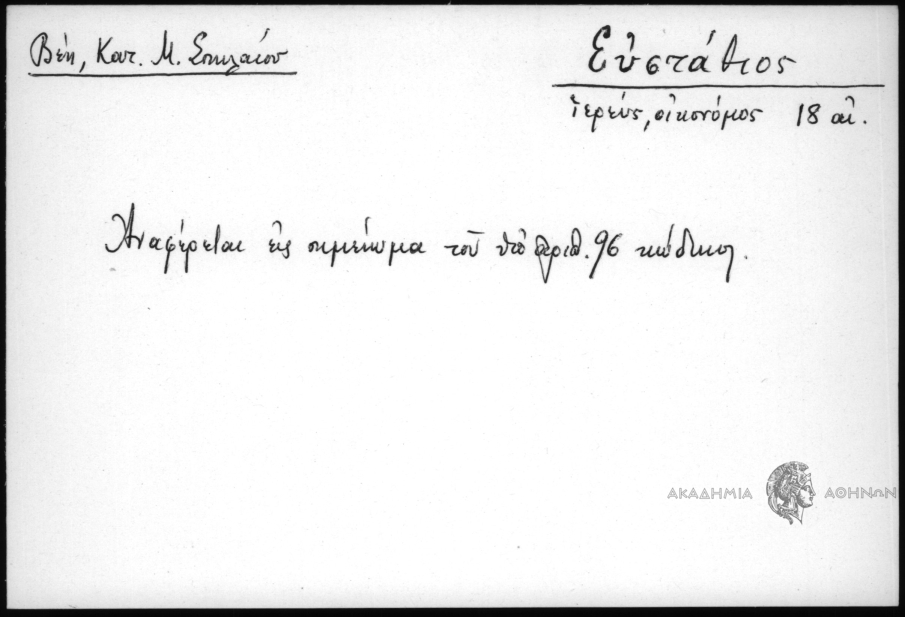 Βέη, Κατ. Μ. Σπηλαίου
Εὐστάθιος
ἱερεύς, οἰκονόμος 18 αἰ.
Ἀναφέρεται εἰς σημείωμα τοῦ ὑπ' ἀριθ. 96 κώδικος.
ΑΚΑΔΗΜΙΑ ΑΘΗΝΩΝ